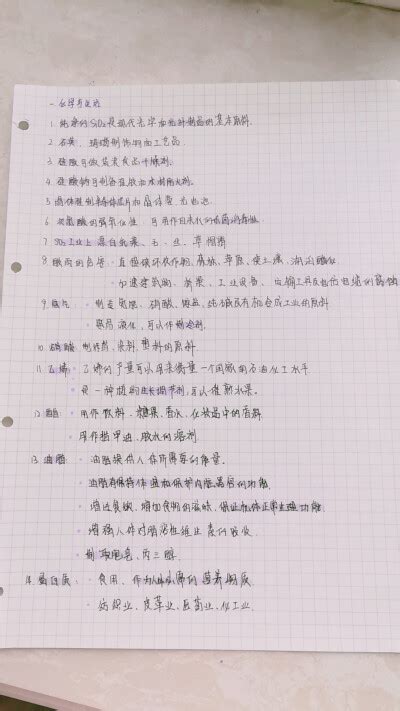 一. 化学与生活
1. 纯净的SiO₂是现代光学和光纤制品的基本原料.
2. 石英、玛瑙制饰物和工艺品
3. 硅胶可做袋装食品干燥剂.
4. 硅酸钠可制备硅胶和木材防火剂.
5. 晶体硅制半导体芯片和晶体管、光电池
6. 次氯酸的强氧化性，可用作自来水的杀菌消毒
7. SO₂工业上漂白纸浆、毛、丝、草帽辫
8. 酸雨的危害：直接破坏农作物、森林、草原、使土壤、湖泊酸化
加速建筑物、桥梁、工业设备、运输工具及电缆的腐蚀
9. 氨气：制造氮肥、硝酸、铵盐、纯碱及有机合成工业的原料
易液化，可以作制冷剂.
10. 硝酸: 制炸药、染料、塑料的原料.
11. 乙烯: 乙烯的产量可以用来衡量一个国家的石油化工水平
是一种植物生长调节剂，可以催熟水果。
12. 酯: 用作饮料、糖果、香水、化妆品中的香料
用作指甲油、胶水的溶剂
13. 油脂: 油脂提供人体所需要的能量。
油脂有保持体温和保护内脏器官的功能
增进食欲，保证机体正常生理功能
增强人体对脂溶性维生素的吸收
制取肥皂、丙三醇
14. 蛋白质: 食用、作为人体必需的营养物质
纺织业、皮革业、医药业、化工业